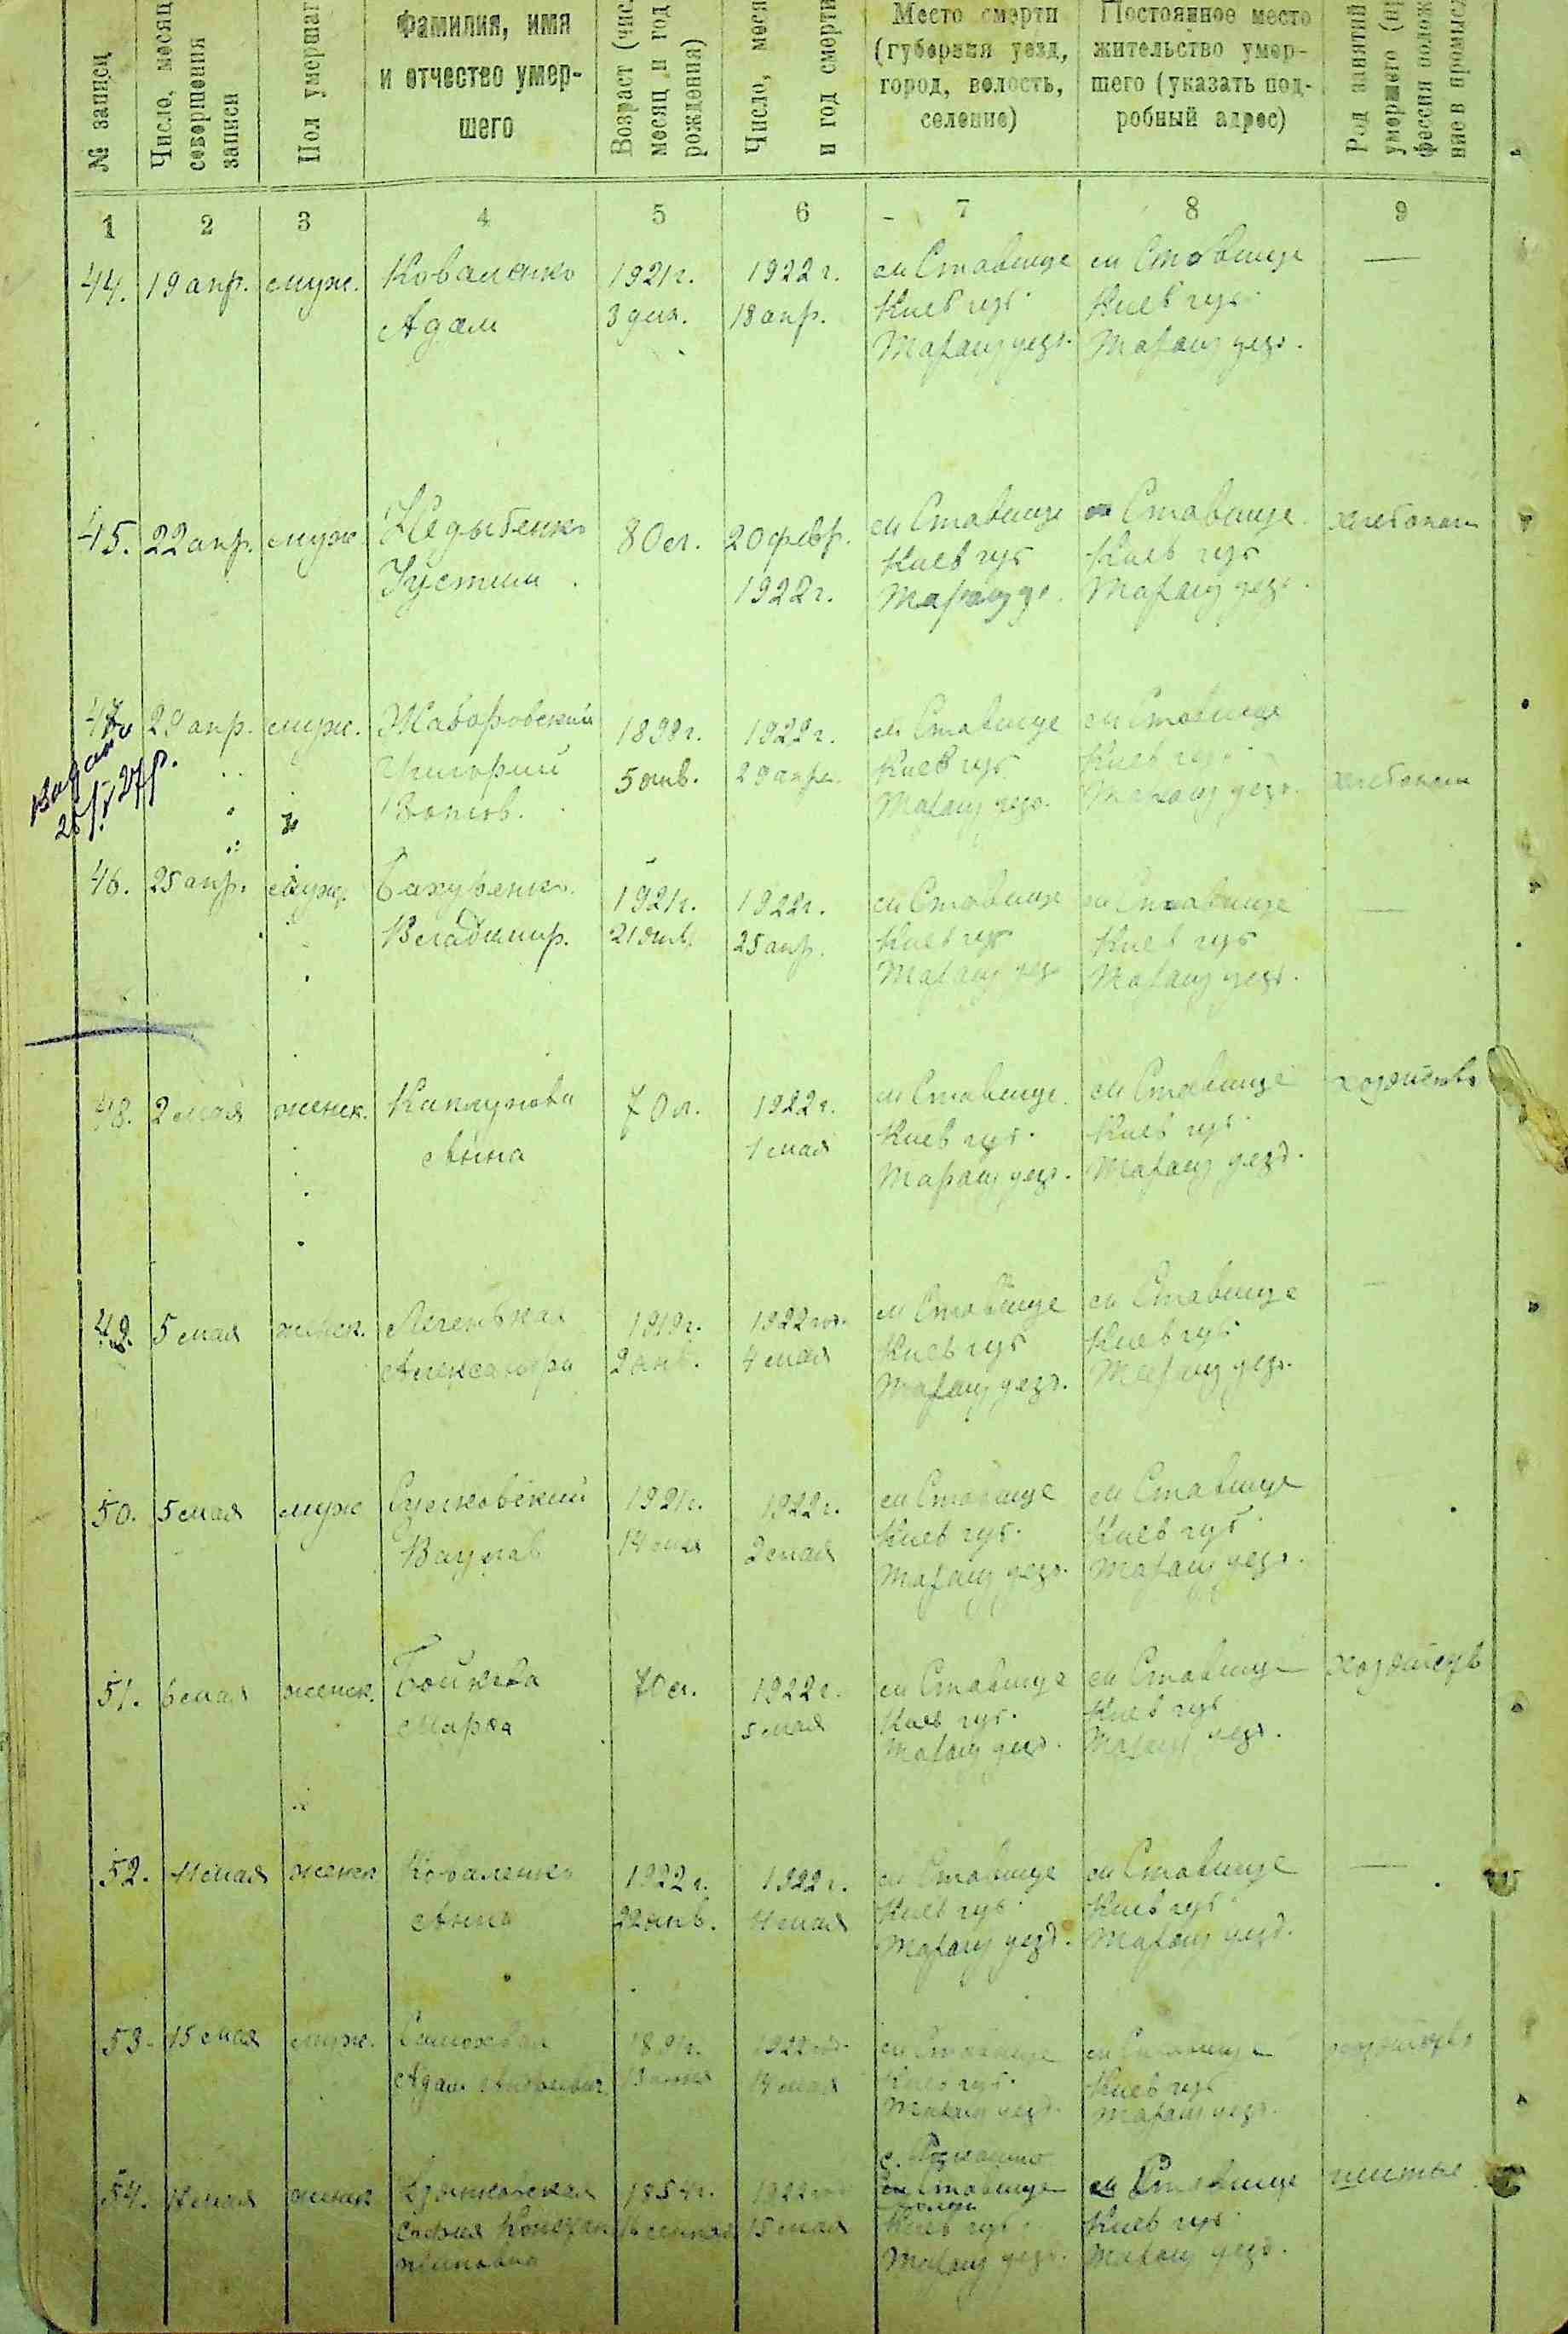 № записи
Число, месяц
совершения
записи
Пол умершаг
Фамилия, имя
и отчество умер-
шего
Возраст (чис.
месяц и год
рождения)
Число, меся
и год смерти
Место смерти
(губерния уезд,
город, волость,
селение)
Постоянное место
жительство умер-
шего (указать под-
робный адрес)
Род занятий
умершего (пр
фессия полож
ние в промысл
1 2 3 4 5 6 7 8 9
44. 19 апр. муж. Коваленко 1921 г. 1922 г. м Ставище м Ставище —
Адам 3 дек. 18 апр. Киев губ. Киев губ.
Таращ уезд. Таращ уезд.
45. 22 апр. муж. 80 л. 20 февр. м Ставище м Ставище хлебопаш
Устин 1922 г. Киев губ Киев губ
Таращ уе. Таращ уезд.
47 29 апр. муж. Жаборовский 1898 г. 1922 г. м Ставище м Ставище
Григорий 5 янв. 29 апре. Киев губ Киев губ
Таращ уезд. Таращ уезд. хлебопаш
Видано
27р.
46. 25 апр. муж. 1921 г. 1922 г. м Ставище м Ставище —
Владимир. 21 янв. 25 апр. Киев губ Киев губ
Таращ уезд Таращ уезд.
48. 2 мая женск. Каплунова 70 л. 1922 г. м Ставище м Ставище хозяйство
Анна 1 мая Киев губ. Киев губ.
Таращ уезд. Таращ уезд.
49. 5 мая женск. Легенькая 1919 г. 1922 год. м Ставище м Ставище —
Александра 2 янв. 4 мая Киев губ Киев губ
Таращ уезд. Таращ уезд.
50. 5 мая муж 1921 г. 1922 г. м Ставище м Ставище
Вацлав 2 мая Киев губ. Киев губ.
Таращ уезд. Таращ уезд.
51. 6 мая женск. Бойкова 70 л. 1922 г. м Ставище м Ставище
Марья 5 мая Киев губ. Киев губ
Таращ уезд. Таращ уезд.
52. 11 мая женск Коваленко 1922 г. 1922 г. м Ставище м Ставище —
Анна 22 янв. 11 мая Киев губ. Киев губ.
Таращ уезд. Таращ уезд.
53. 15 мая муж. 1922 год. м Ставище м Ставище
Адам 14 мая Киев губ. Киев губ
Таращ уезд. Таращ уезд.
с.
54. женск 1854 г. 1922 год м Ставище м Ставище шитье
София 15 мая Киев губ. Киев губ.
Таращ уезд. Таращ уезд.